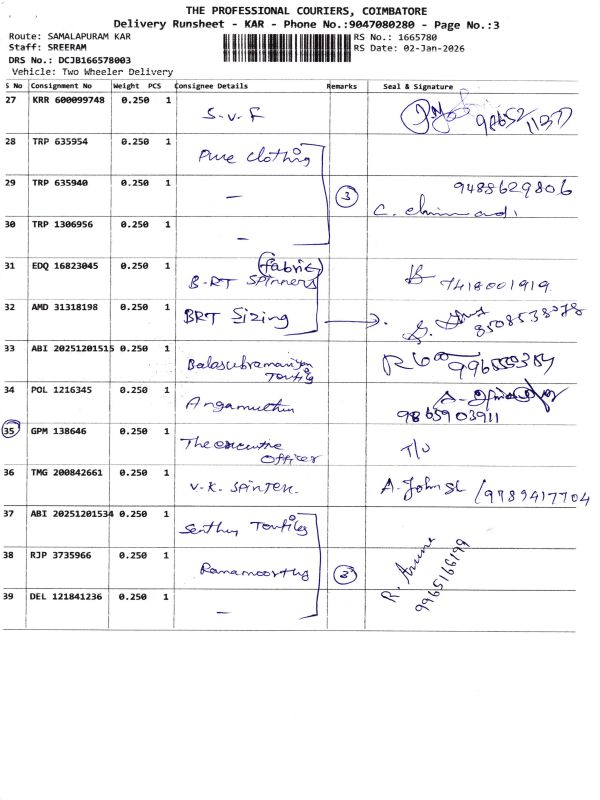 THE PROFESSIONAL COURIERS, COIMBATORE
Delivery Runsheet - KAR - Phone No.:9047080280 - Page No.:3
Route: SAMALAPURAM KAR
Staff: SREERAM
DRS No.: DCJB166578003
Vehicle: Two Wheeler Delivery
RS No.: 1665780
RS Date: 02-Jan-2026
S No Consignment No Weight PCS Consignee Details Remarks Seal & Signature
27 KRR 600099748 0.250 1 S.V.F
28 TRP 635954 0.250 1 Pure Clothing
29 TRP 635940 0.250 1 — 3 9488629806
30 TRP 1306956 0.250 1 —
31 EDQ 16823045 0.250 1 B-RT Spinners (fabric) 7418001919
32 AMD 31318198 0.250 1 BRT Sizing 8508538078
33 ABI 20251201515 0.250 1 Balasubramaniyan
34 POL 1216345 0.250 1 Angamuthu 9865903911
35 GPM 138646 0.250 1 The executive Officer T/U
36 TMG 200842661 0.250 1 V.K. Spintex. A. John SL / 9789417704
37 ABI 20251201534 0.250 1
38 RJP 3735966 0.250 1 Ramamoorthy 3 R. Aruna 9965166199
39 DEL 121841236 0.250 1 —